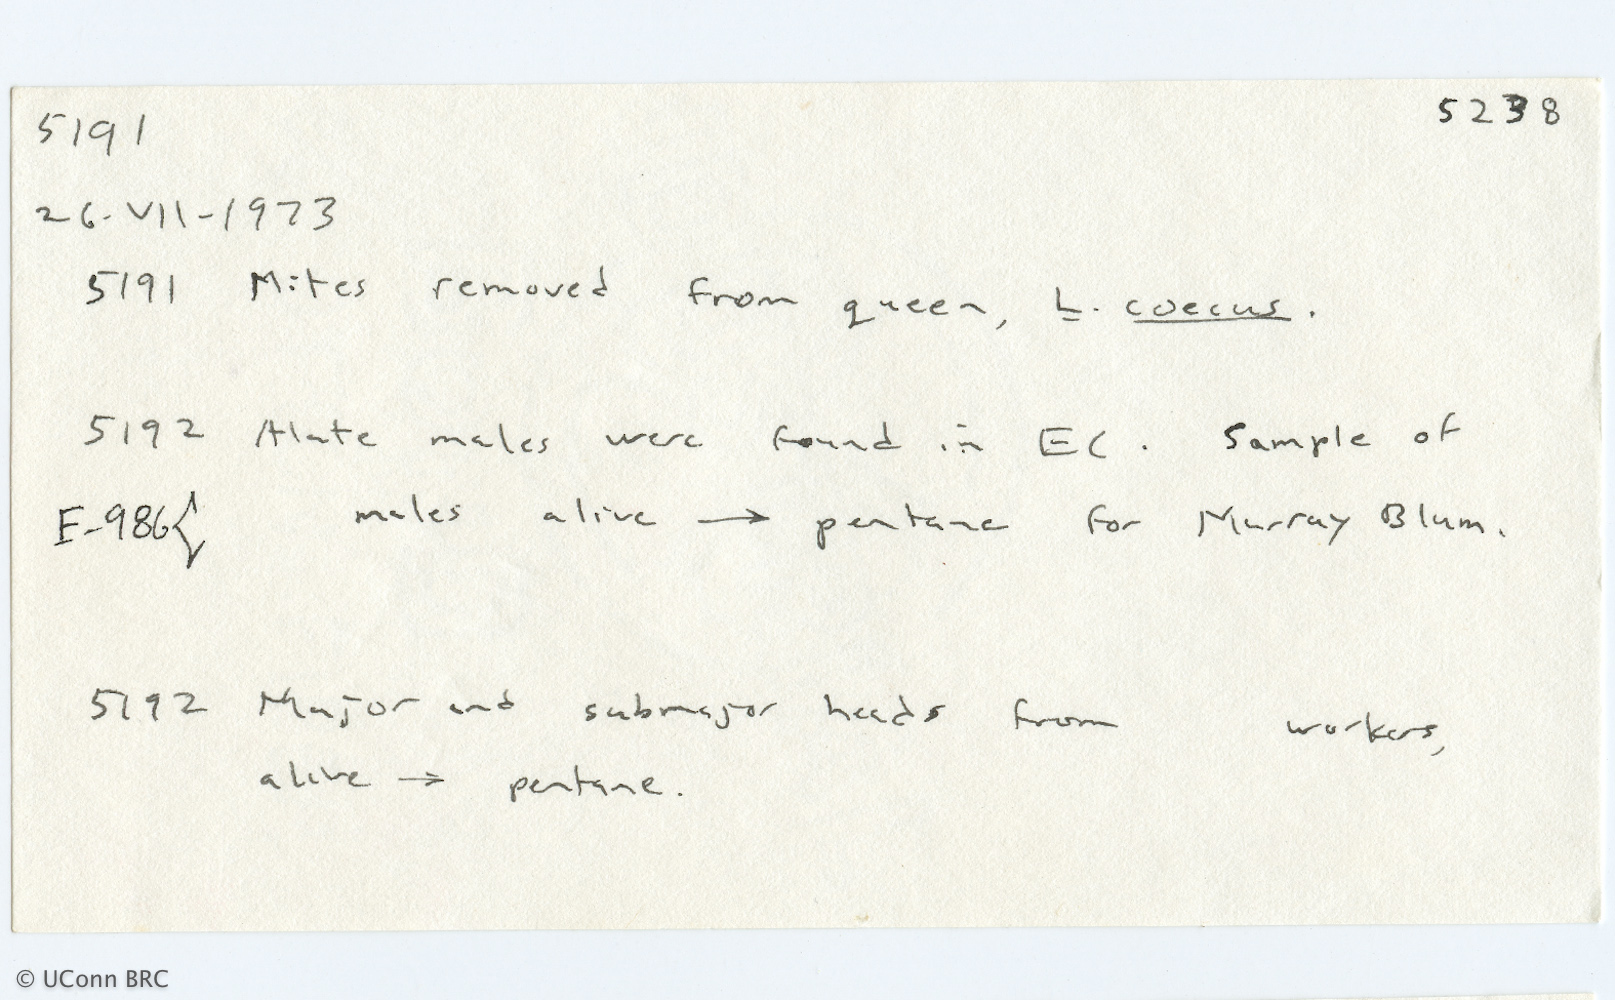 5191
5238
26-VII-1973
5191 Mites removed from queen, L. coecus.
5192 Alate males were found in EC. Sample of
E-986{ males alive → pentane for Murray Blum.
5192 Major and submajor heads from workers,
alive → pentane.
© UConn BRC